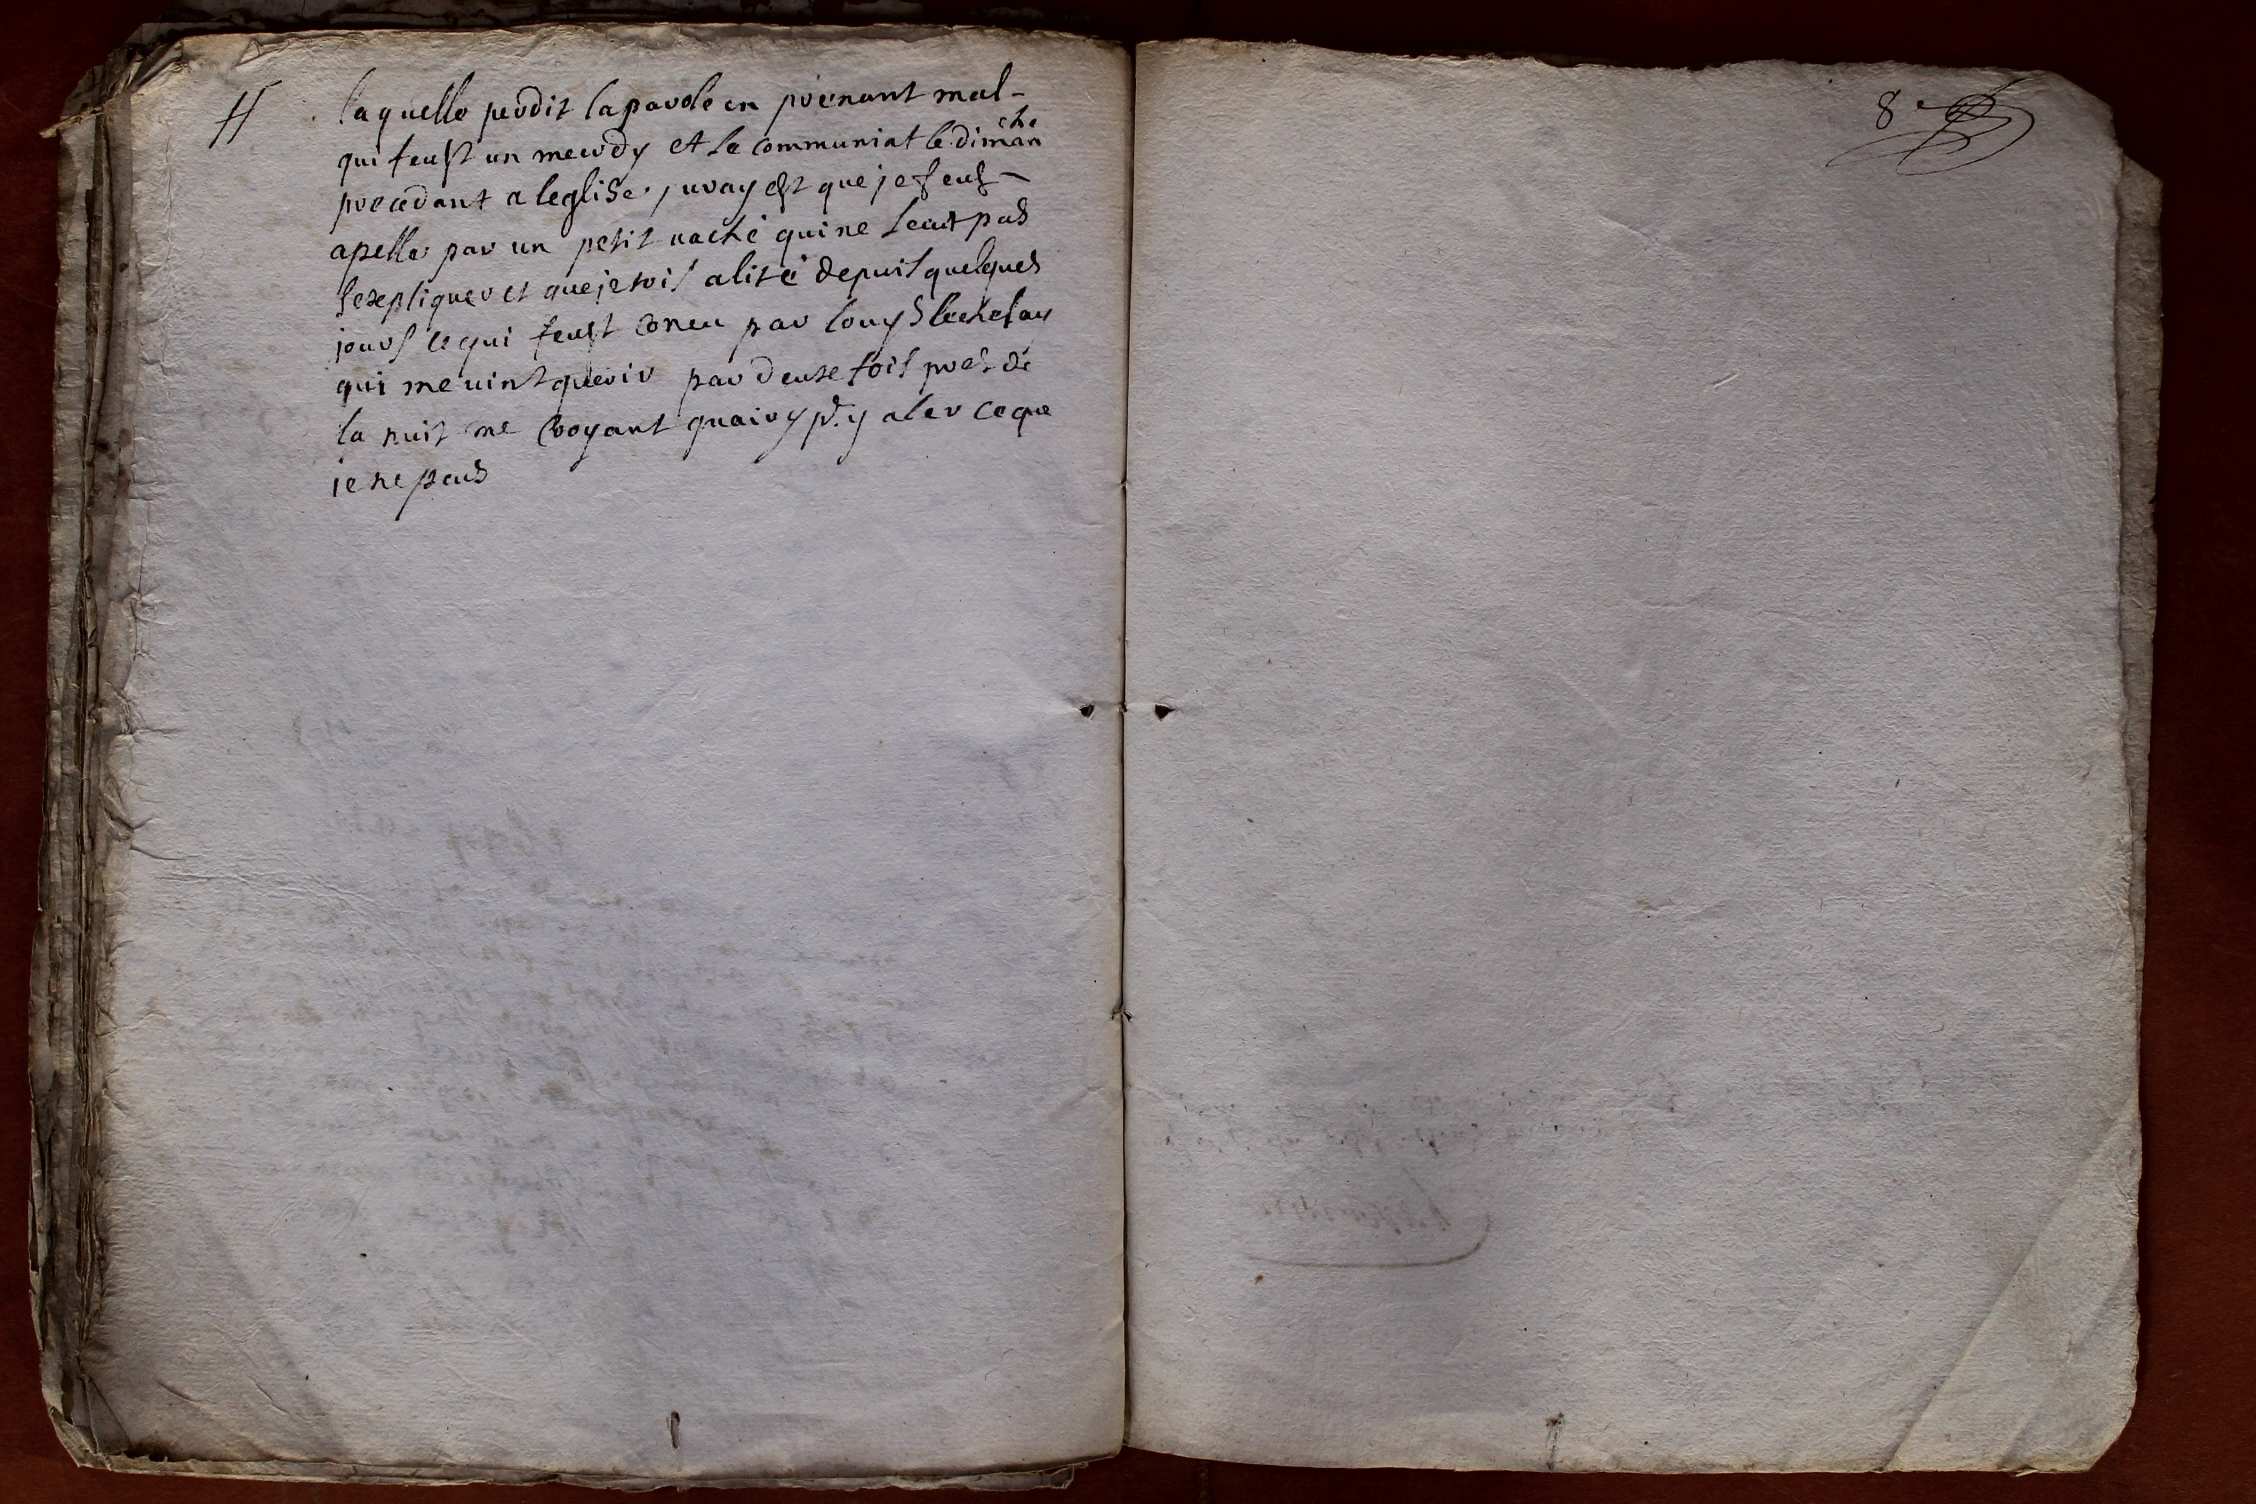 H
laquelle perdit la parole en prenant mal -
qui feust un mecrdy et se communiat le dimanche
precedant a leglise, uray est que je feus -
apelle par un petit vaché qui ne sceut pas
sexpliquer et que jetois alité depuis quelques
jours ce qui feust coneu par Louys
qui me uint querir par deuxe fois pres de
la nuit me croyant quairy pr. y aler ce que
je ne peus
8e